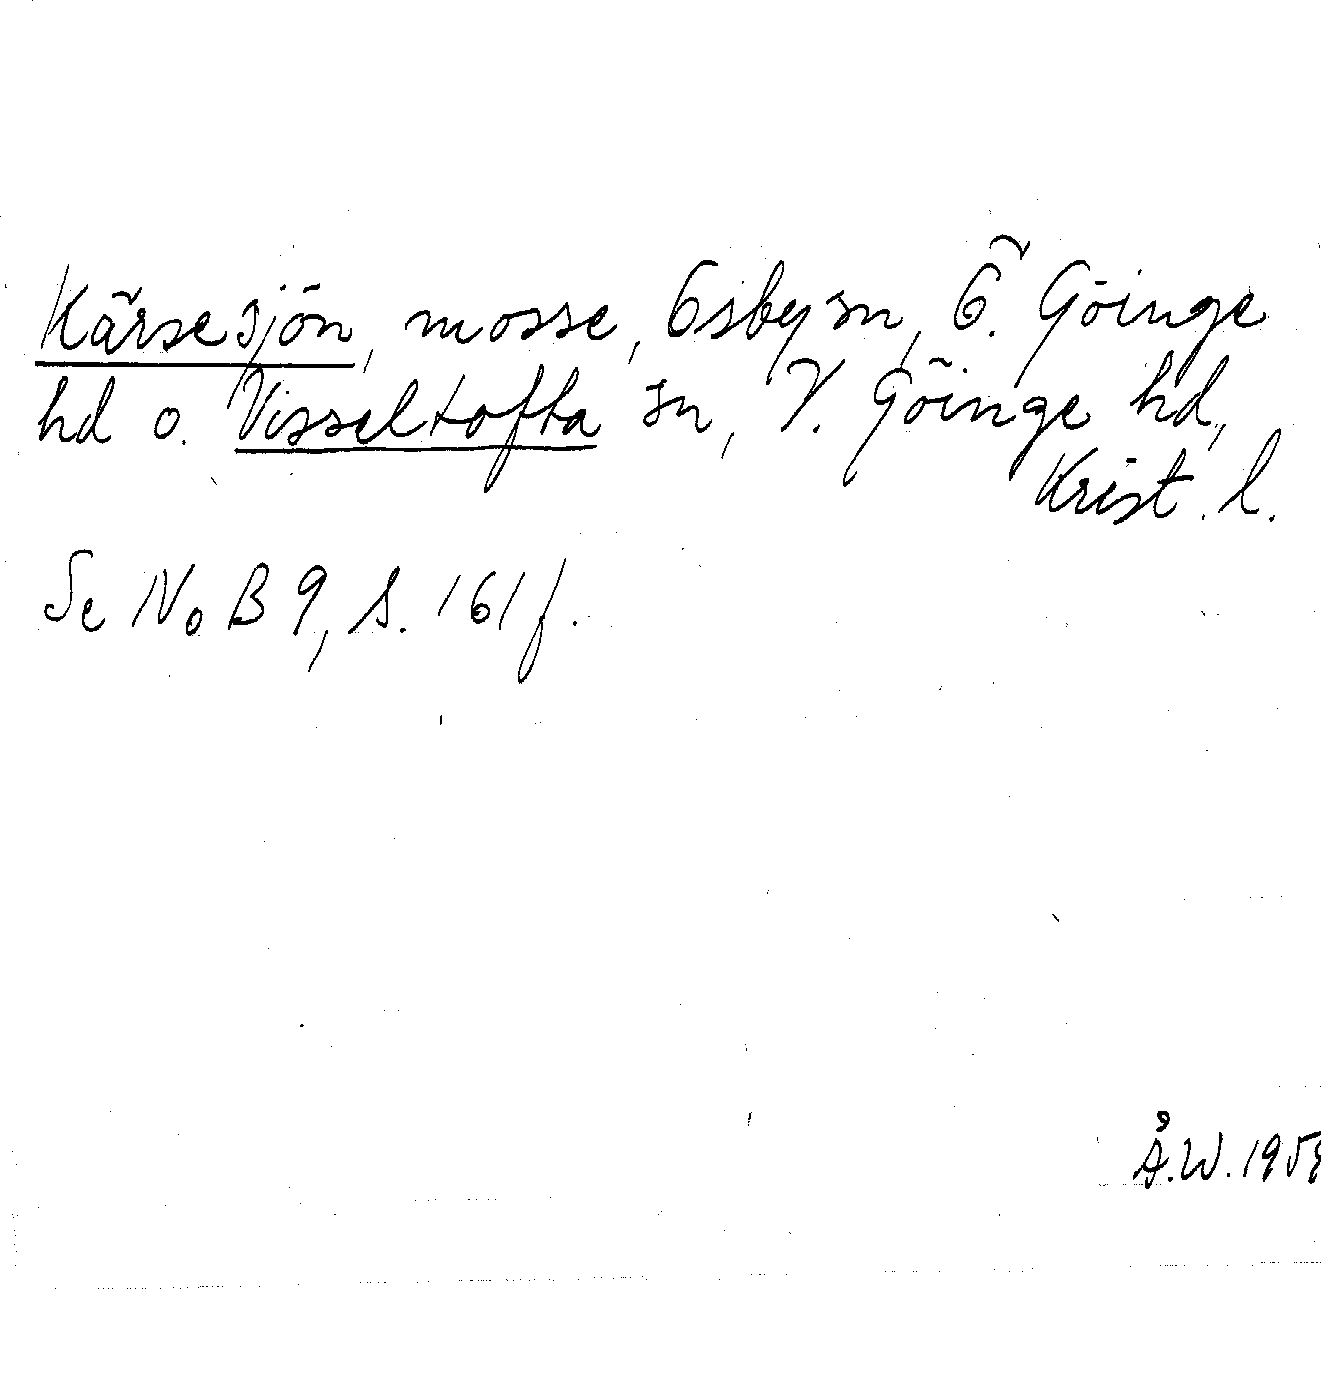 Kärsesjön, mosse, Osby sn, Ö. Göinge
hd o. Visseltofta sn, V. Göinge hd,
Krist. l.
Se NoB 9, s. 161 f.
Å.W.